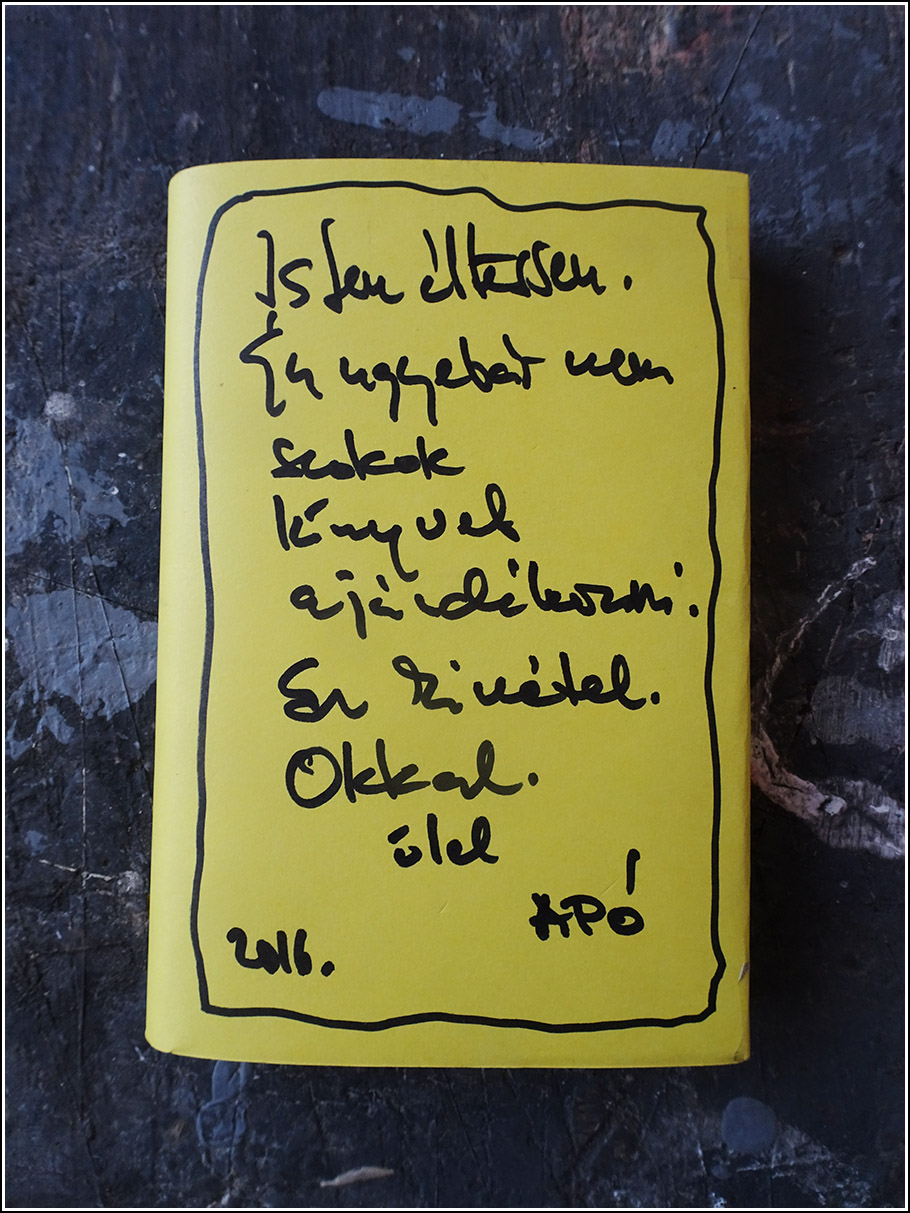 Isten éltessen.
Én ugyebár nem
szokok
könyvet
ajándékozni.
Ez kivétel.
Okkal.
ölel
APÓ
2016.